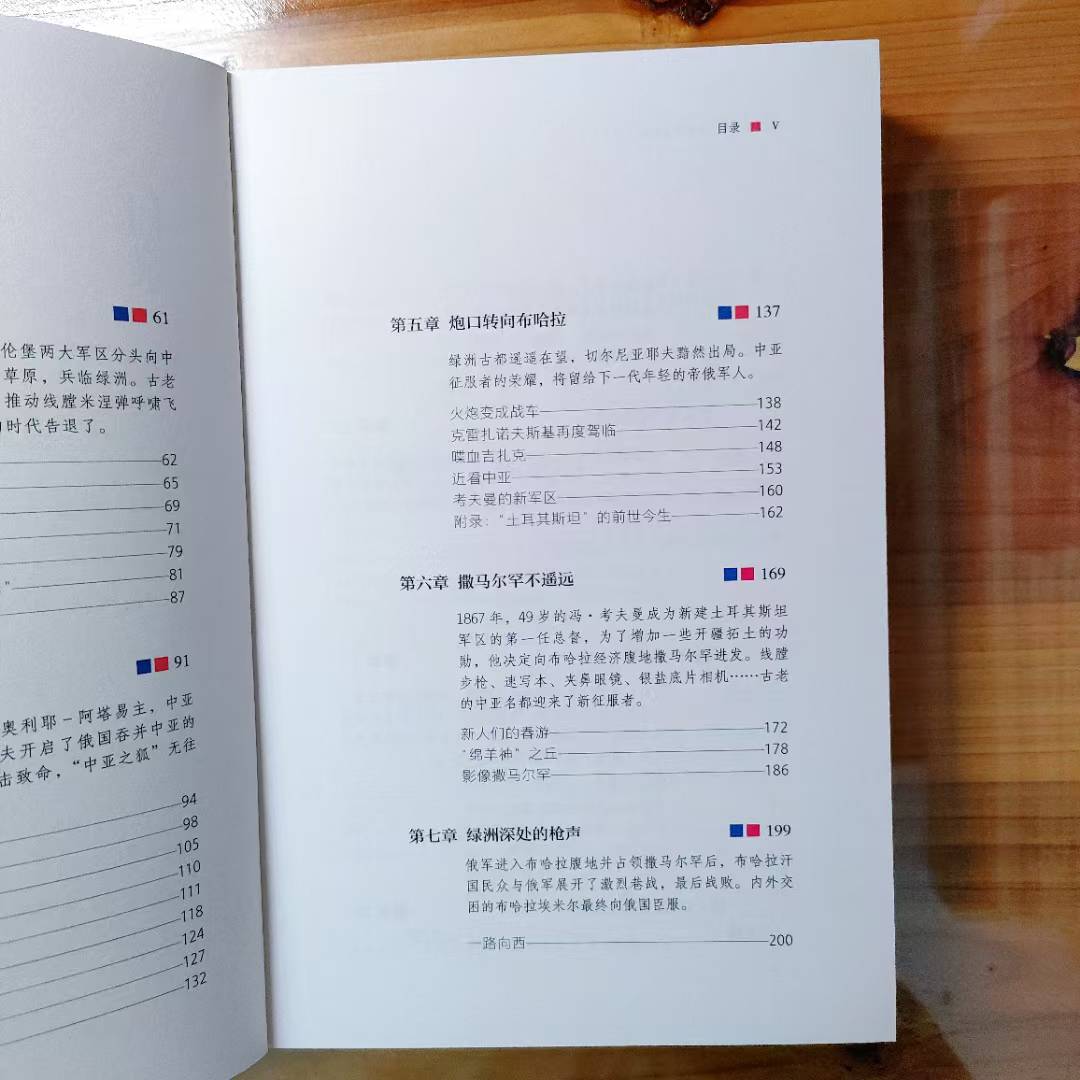 61
伦堡两大军区分头向中
草原，兵临绿洲。古老
推动线膛米涅弹呼啸飞
时代告退了。
62
65
69
71
79
”81
87
91
奥利耶－阿塔易主，中亚
夫开启了俄国吞并中亚的
击致命，“中亚之狐”无往
94
98
105
110
111
118
124
127
132
目录 V
第五章 炮口转向布哈拉 137
绿洲古都遥遥在望，切尔尼亚耶夫黯然出局。中亚
征服者的荣耀，将留给下一代年轻的帝俄军人。
火炮变成战车 138
克雷扎诺夫斯基再度驾临 142
喋血吉扎克 148
近看中亚 153
考夫曼的新军区 160
附录：“土耳其斯坦”的前世今生 162
第六章 撒马尔罕不遥远 169
1867 年，49 岁的冯·考夫曼成为新建土耳其斯坦
军区的第一任总督，为了增加一些开疆拓土的功
勋，他决定向布哈拉经济腹地撒马尔罕进发。线膛
步枪、速写本、夹鼻眼镜、银盐底片相机……古老
的中亚名都迎来了新征服者。
新人们的春游 172
“绵羊神”之丘 178
影像撒马尔罕 186
第七章 绿洲深处的枪声 199
俄军进入布哈拉腹地并占领撒马尔罕后，布哈拉汗
国民众与俄军展开了激烈巷战，最后战败。内外交
困的布哈拉埃米尔最终向俄国臣服。
一路向西 200